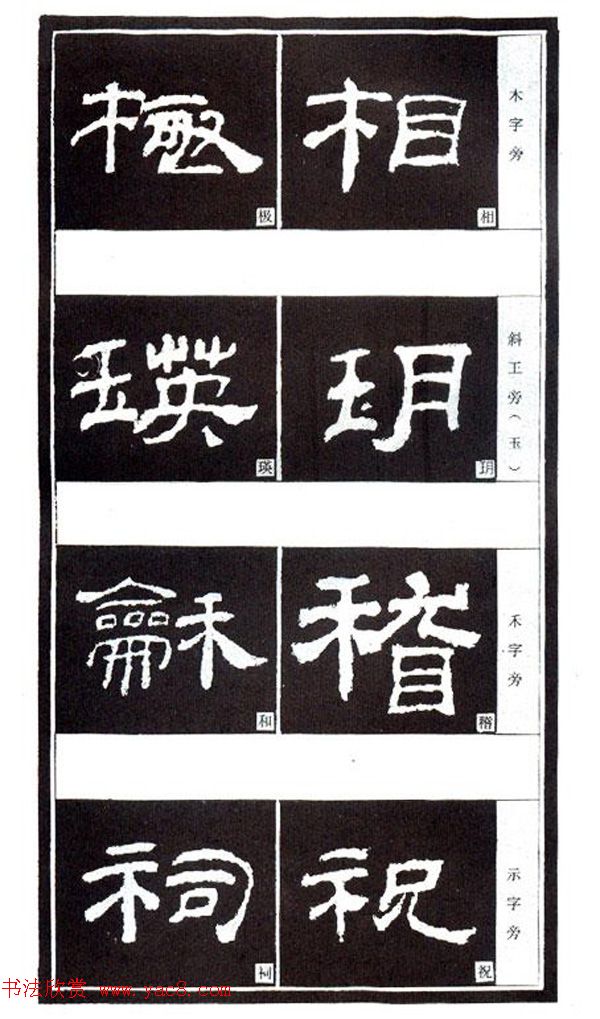 木字旁
相
相
極
极
斜工旁（玉）
玥
玥
瑛
瑛
禾字旁
稽
稽
龢
和
示字旁
祝
祝
祠
祠
书法欣赏 www.yac8.com